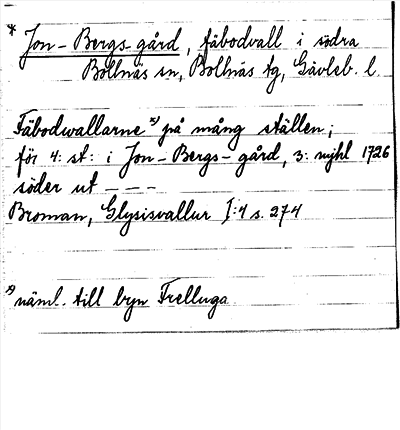 * Jon-Bergs-gård, fäbodvall i södra
Bollnäs sn, Bollnäs tg, Gävleb. l.
Fäbodwallarne x) på mång ställen;
för 4: st: i Jon-Bergs-gård, 3: mjhl 1726
söder ut - - -
Broman, Glysisvallur I:4 s. 274
x) näml. till byn Freluga